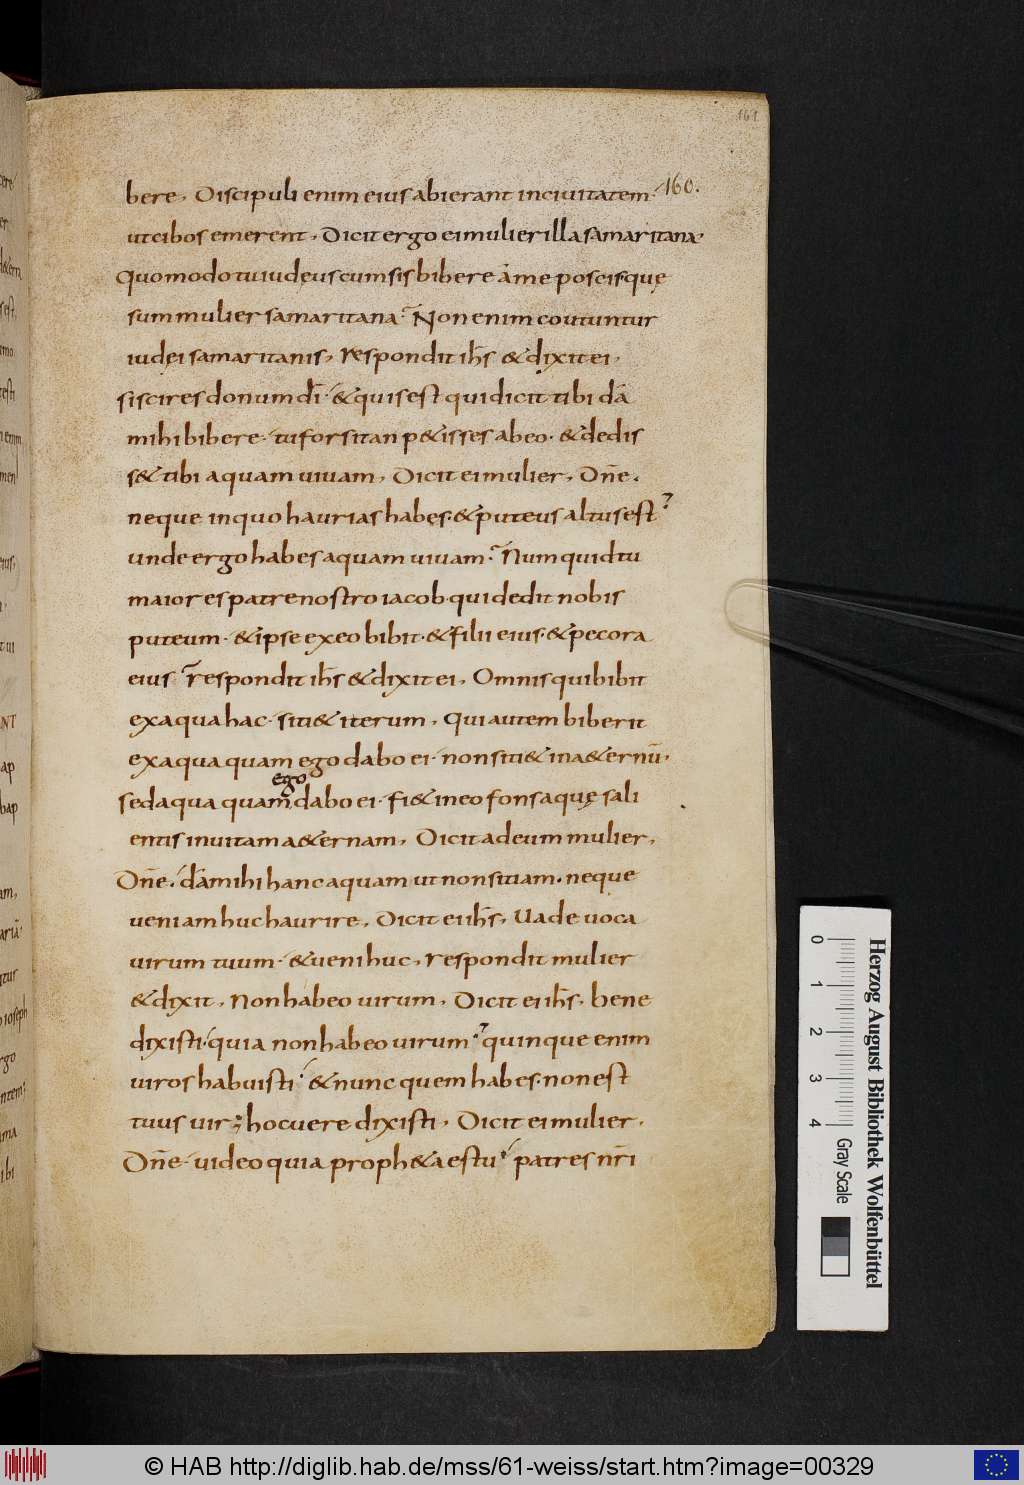 161
160.
bere, Discipuli enim eius abierant inciuitatem
utcibos emerent, Dicit ergo eimulier illa samaritana
Quomodo tu iudęus cum sis bibere áme poscis quę
sum mulier samaritana. Non enim coutuntur
iudęi samaritanis, Respondit ihs̄ & dixit ei,
si scires donum dī & quis est qui dicit tibi dá
mihi bibere. tu forsitan p&isses abeo. & dedis
s& tibi aquam uiuam, Dicit ei mulier, Dn̄e.
neque inquo haurias habęs. & puteus altus est?
unde ergo habes aquam uiuam. Numquid tu
maior es patre nostro iacob qui dedit nobis
puteum. & ipse exeo bibit. & filii eius. & pecora
eius respondit ihs̄ & dixit ei, Omnis qui bibit
exaqua hac. siti& iterum, Qui autem biberit
exaqua quam ego dabo ei. non siti& ina&ernū.
ego
sed aqua quam, dabo ei. fi& ineo fons aquę sali
entis inuitam a&ernam, Dicit adeum mulier,
Dn̄e. dá mihi hanc aquam ut non sitiam. neque
ueniam huc haurire, Dicit ei ihs̄, Uade uoca
uirum tuum. & ueni huc, respondit mulier
& dixit, Non habeo uirum, Dicit ei ihs̄. bene
dixisti. quia non habeo uirum? quinque enim
uiros habuisti. & nunc quem habes. non est
tuus uir; hoc uere dixisti, Dicit ei mulier.
Dn̄e. uideo quia proph&a es tu. patres nr̄i
Herzog August Bibliothek Wolfenbüttel
0 1 2 3 4
Gray Scale
© HAB http://diglib.hab.de/mss/61-weiss/start.htm?image=00329